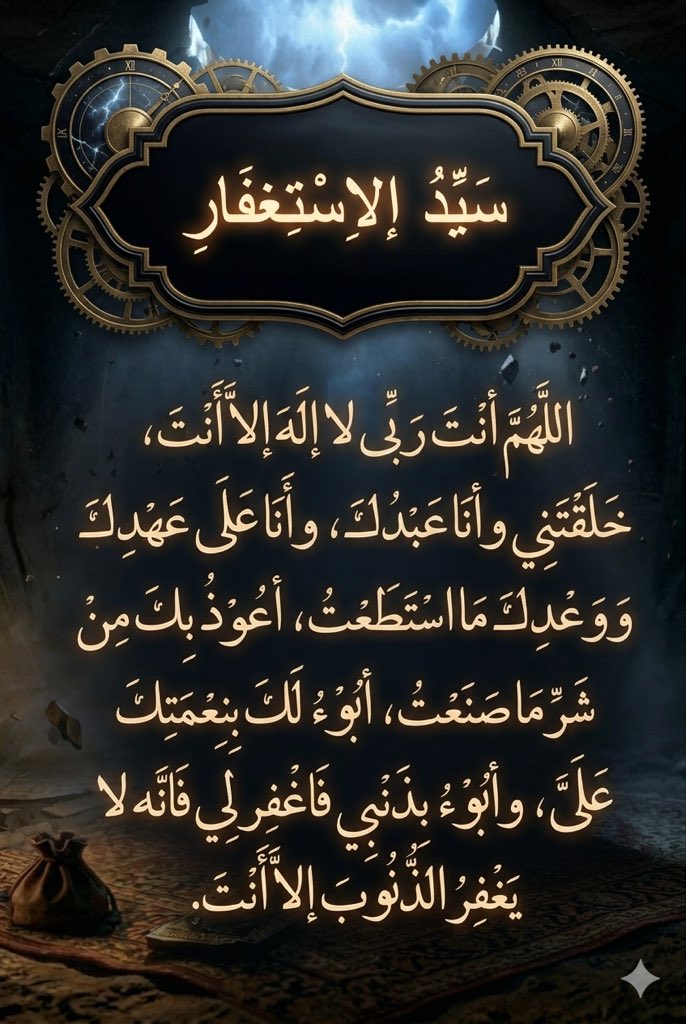 سَيِّدُ إلاِسْتِغفَارِ
اللَّهُمَّ أنْتَ رَبِّى لا إلَهَ إلاَّ أَنْتَ،
خَلَقْتَنِي وأنَا عَبْدُكَ، وأَنَا عَلَى عَهْدِكَ
وَوَعْدِكَ مَا اسْتَطَعْتُ، أعُوْذُ بِكَ مِنْ
شَرِّ مَا صَنَعْتُ، أبُوْءُ لَكَ بِنِعْمَتِكَ
عَلَىَّ، وأبُوْءُ بِذَنْبِي فَاغْفِر لِي فَانَّه لا
يَغْفِرُ الذُّنُوبَ إلاَّ أَنْتَ.